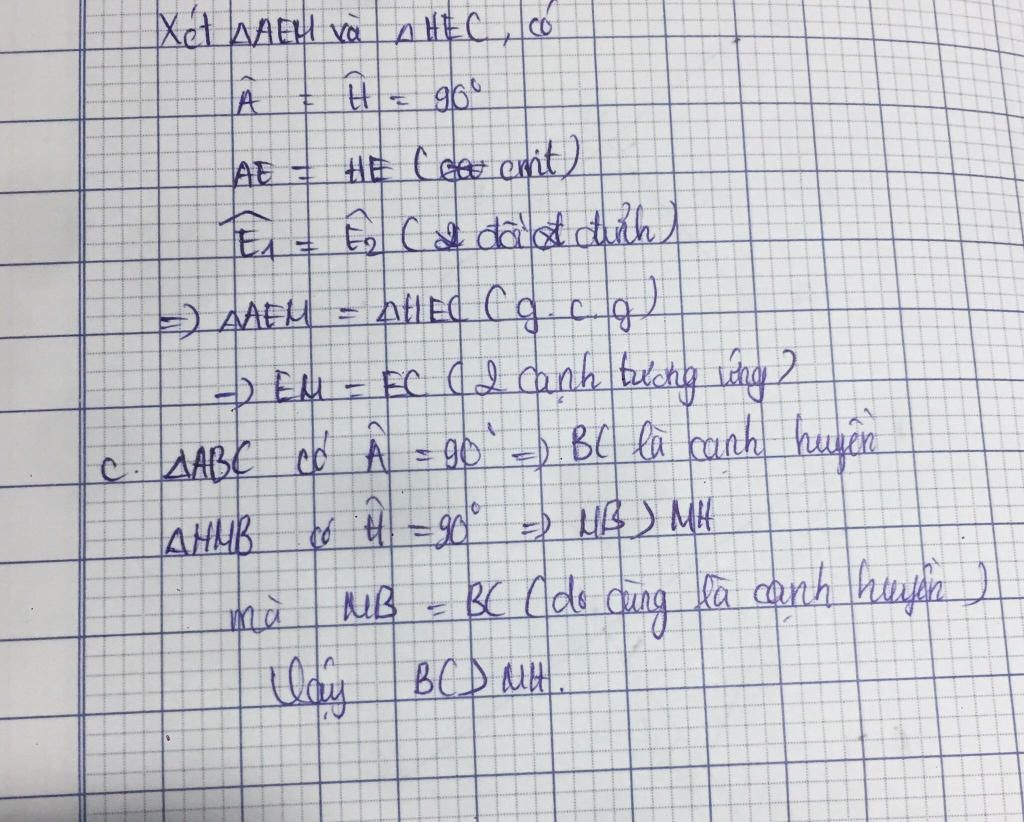 Xét ΔAEM và ΔHEC, có
Â = Ĥ = 90°
AE = HE (cmt)
Ê1 = Ê2 (2 đối đỉnh)
=> ΔAEM = ΔHEC (g.c.g)
=> EM = EC (2 cạnh tương ứng)
c. ΔABC có Â = 90° => BC là cạnh huyền
ΔHMB có Ĥ = 90° => MB > MH
mà MB = BC (do cùng là cạnh huyền)
Vậy BC > MH.